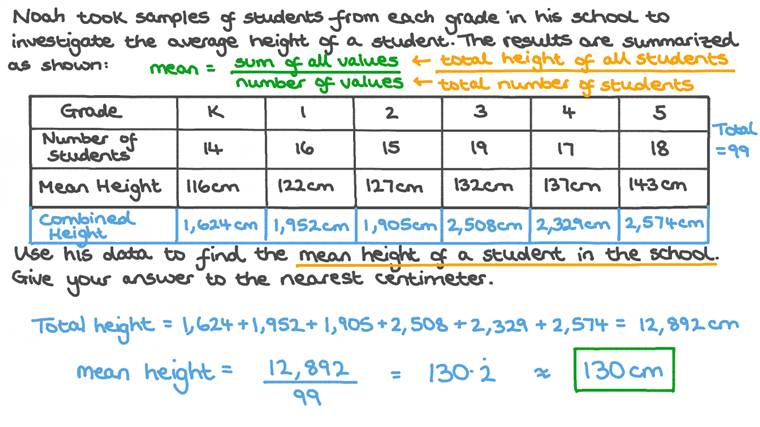 Noah took samples of students from each grade in his school to
investigate the average height of a student. The results are summarized
as shown:
mean = sum of all values / number of values
← total height of all students
← total number of students
Grade K 1 2 3 4 5
Number of Students 14 16 15 19 17 18
Total = 99
Mean Height 116cm 122cm 127cm 132cm 137cm 143cm
Combined Height 1,624cm 1,952cm 1,905cm 2,508cm 2,329cm 2,574cm
Use his data to find the mean height of a student in the school.
Give your answer to the nearest centimeter.
Total height = 1,624 + 1,952 + 1,905 + 2,508 + 2,329 + 2,574 = 12,892 cm
mean height = 12,892 / 99 = 130.2̇ ≈ 130cm